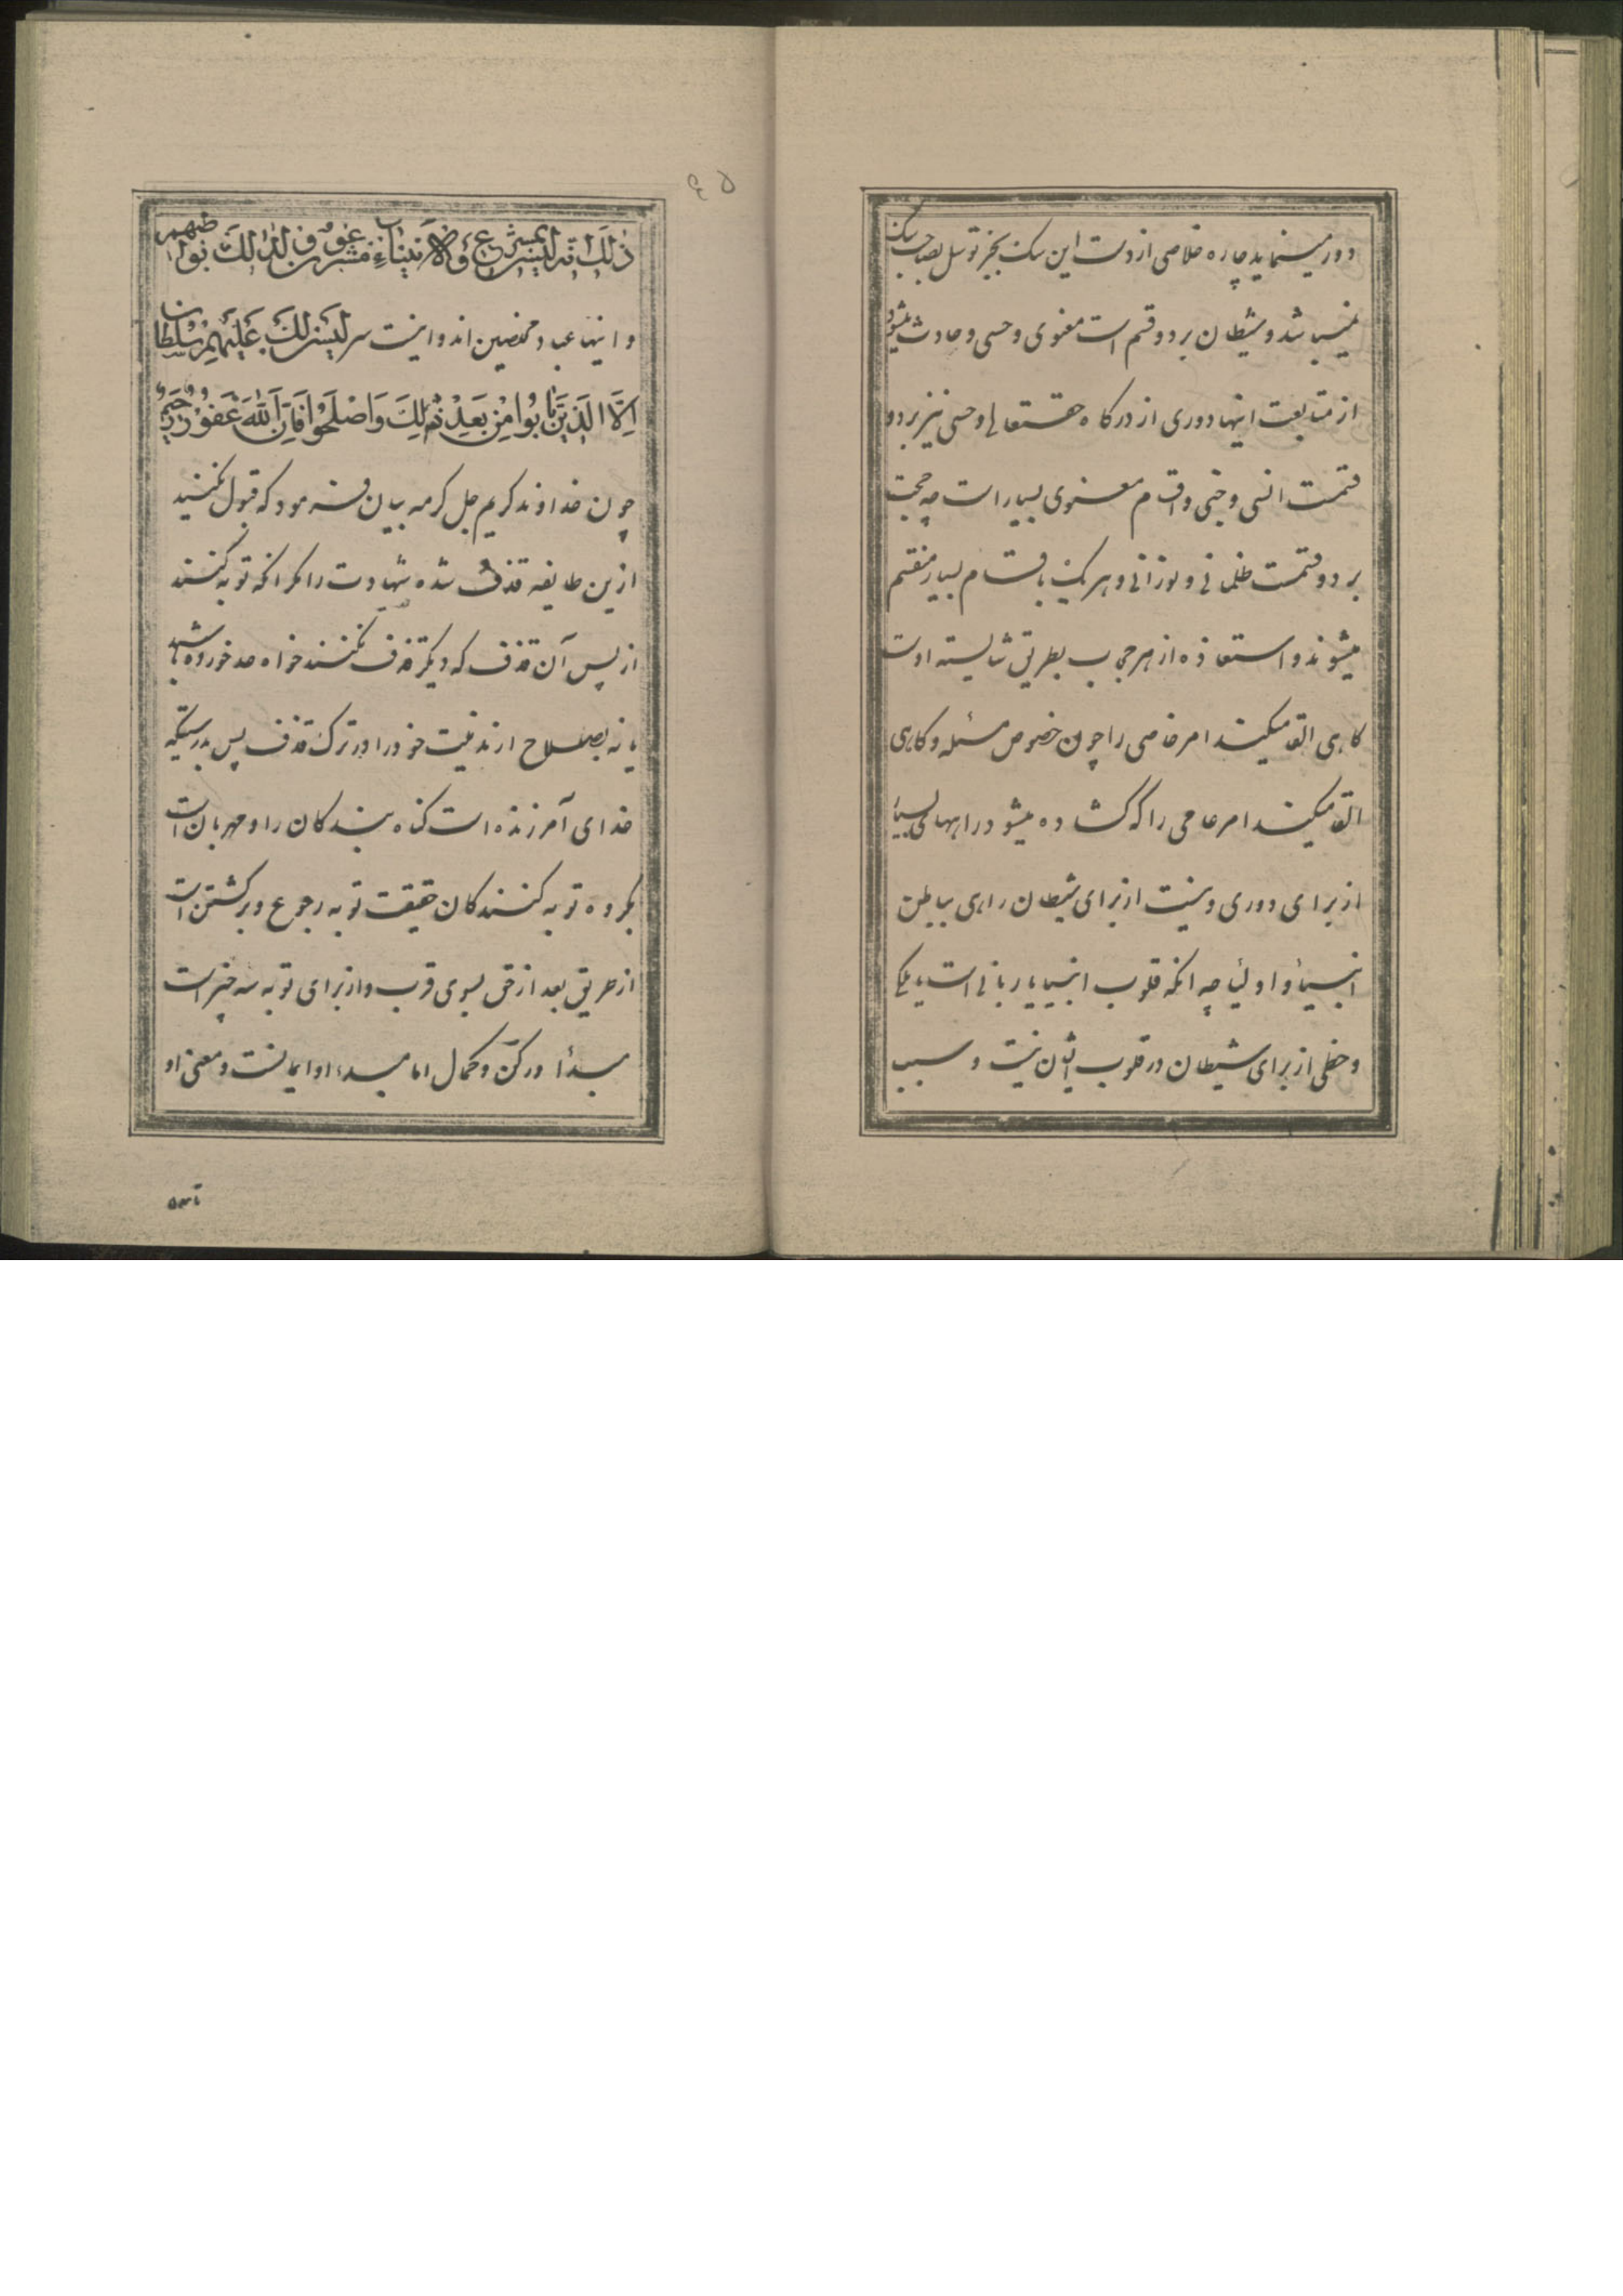 دور مینماید چاره خلاصی از دست این سک بجز توسل بصاحب سک
نمیباشد و شیطان بر دو قسم است معنوی و حسی و حادث میشود
از متابعت اینها دوری از درکاه حقتعالی و حسی نیز بر دو
قسمت انسی و جنی و اقسام معنوی بسیار است چه حجب
بر دو قسمت ظلمانی و نورانی و هر یک باقسام بسیار منقسم
میشوند و استعاذه از هر حجاب بطریق شایسته اوست
کاهی القا میکند امر خاصی را چون خصوص مسئله و کاهی
القا میکند امر عامی را که کشاده میشود راههای بسیار
از برای دوری و نیست از برای شیطان راهی بباطن
انبیاء و اولیا چه انکه قلوب انبیا یا ربانی است یا ملکی
و حظی از برای شیطان در قلوب ایشان نیست و سبب
ذلك
و اینها عباد مخلصین اند و اینست سر لیس لك علیهم سلطان
اِلَّا الَّذینَ تابُوا مِنْ بَعْدِ ذٰلِكَ وَاَصْلَحُوا فَاِنَّ اللّٰهَ غَفُورٌ رَحیمٌ
چون خداوند کریم جل کرمه بیان فرمود که قبول نکنید
ازین طایفه قذف شده شهادت را مکر انکه توبه کنند
از پس آن قذف که دیکر قذف نکنند خواه حد خورده باشند
یا نه بصلاح ارند نیت خود را در ترک قذف پس بدرستیکه
خدای آمرزنده است کناه بندکان را و مهربان است
بکروه توبه کنندکان حقیقت توبه رجوع و برکشتن است
از طریق بعد از حق بسوی قرب و از برای توبه سه چیز است
مبدأ و رکن و کمال اما مبدء او ایمانست و معنی او